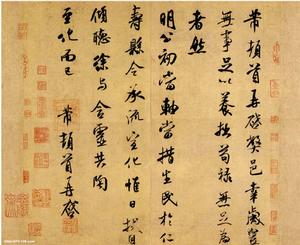 芾頓首再啓弊邑幸歲豐
無事足以養拙苟禄無足為
者然
明公初當軸當措生民於仁
壽縣令承流宣化惟日拭目
傾聽徐與含靈共陶
至化而已 芾頓首再啓